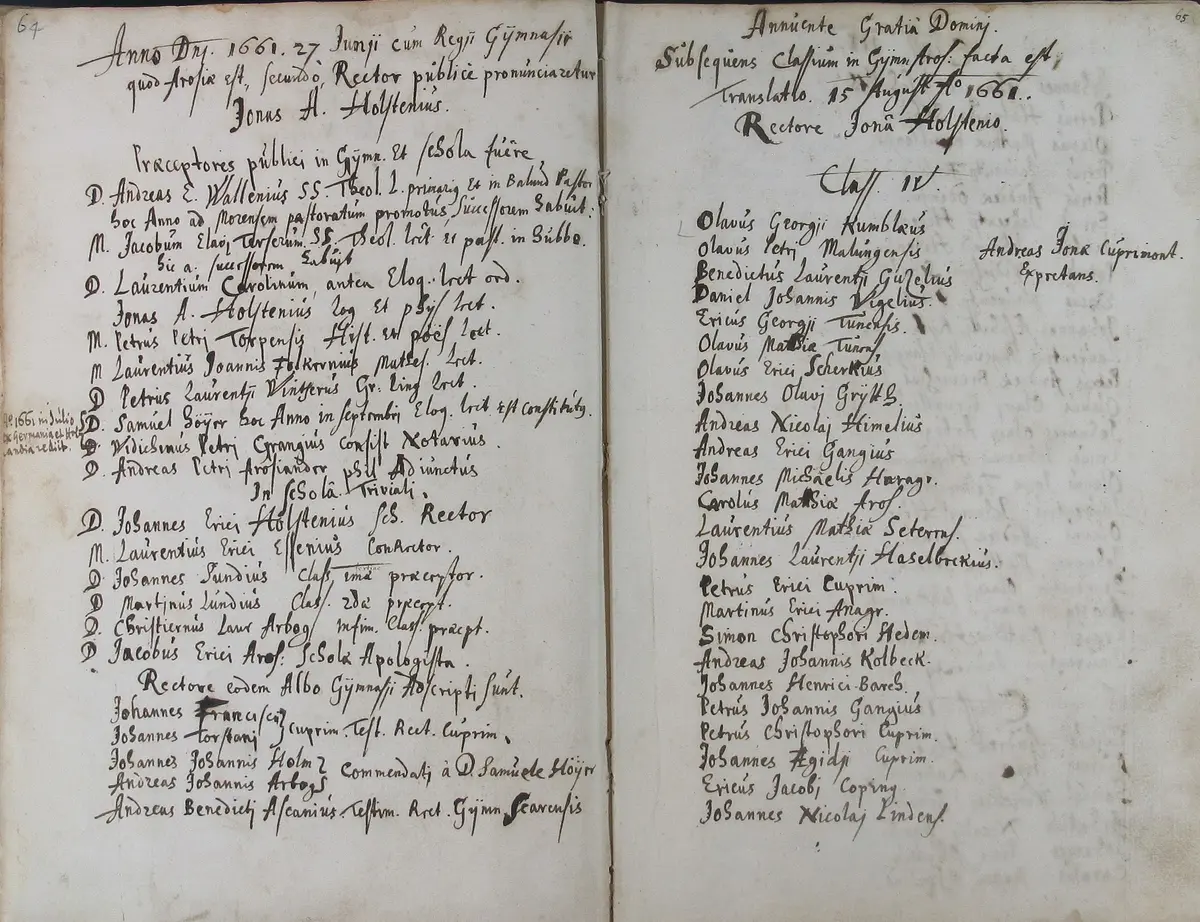 64
Anno Dnj. 1661. 27 Junji cum Regij Gÿmnasij
quod Arosiæ est, secundò, Rector publicè pronunciaretur
Jonas A. Holstenius.
Præceptores publici in Gÿmn. Et schola fuêre
D. Andreas E. Wallenius SS. Theol. L. primarig Et in Balund Pastor
hoc Anno ad Morensem pastoratum promotus, Successorem habuit.
M. Jacobum Elaoj Terserum SS. Theol. lect. et past. in Hubbo.
hic a. successorem habuit
D. Laurentium Carolinum, antea Eloq. lect ord.
Jonas A. Holstenius Log Et phÿs lect.
M. Petrus Petri Torpensis Hist. Et poës lect.
M Laurentius Joannis Folkernius Mathes. lect.
D Petrus Laurentij Vintherus Gr. ling lect.
D. Samuel Höÿer hoc Anno in septembri Eloq. lect Est constitutg.
Aº 1661 in Julio
ex Germania et Hol
landia rediit.
D. Vidichinus Petri Grangius Consist Notarius.
D. Andreas Petri Arosiander phil Adiunctus
In Scholâ Triviali.
D. Johannes Erici Holstenius Sch. Rector
M. Laurentius Erici Essenius ConRector.
D Johannes Sundius Class præceptor.
D Martinus Lundius Clas. 2dæ præcept.
D. Christiernus Laur Arbog infim. Clas. præcpt.
D Jacobus Erici Aros: Scholæ Apologista.
Rectore eodem Albo Gÿmnasij Adscripti sunt.
Johannes Franciscj
Johannes Torstanj } Cuprim. Test. Rect. Cuprim.
Johannes Johannis Holm
Andreas Johannis Arbogs } Commendatj à D. Samuele Höÿer
Andreas Benedictj Ascanius Testim. Rect. Gÿmn Scarensis
65
Annuente Gratiâ Dominj.
Subsequens Classium in Gÿmn Aros: facta est
Translatio. 15 August Aº 1661.
Rectore Jonâ Holstenio.
Class. IV.
Olavus Georgii Kumblæus
Olavus Petri Malungensis
Andreas Jonæ Cuprimont.
Expectans.
Benedictus Laurentij Guzelius
Daniel Johannis Vigelius.
Ericus Georgij Tunensis.
Olavus Mathiæ Tunens
Olavus Erici Scherkius
Johannes Olavj Grÿtth.
Andreas Nicolaj Himelius
Andreas Erici Gangius
Johannes Michaelis Haragr.
Carolus Mathiæ Aros.
Laurentius Mathiæ Seterens.
Johannes Laurentij Haselbeckius.
Petrus Erici Cuprim.
Martinus Erici Anagr.
Simon Christophori Hedem.
Andreas Johannis Kolbeck.
Johannes Henrici Barch.
Petrus Johannis Gangius
Petrus Christophori Cuprim.
Johannes Ægidij Cuprim.
Ericus Jacobj Coping.
Johannes Nicolaj Lindens.